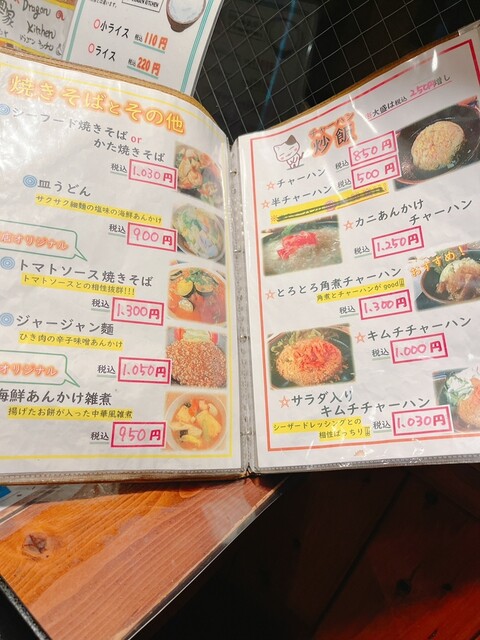 Dragon
Kitchen
KITCHEN
○小ライス 税込 110円
○ライス 税込 220円
焼きそばとその他
◎シーフード焼きそば or
かた焼きそば
税込 1.030円
◎皿うどん
サクサク細麺の塩味の海鮮あんかけ
税込 900円
オリジナル
◎トマトソース焼きそば
トマトソースとの相性抜群!!!
税込 1.300円
◎ジャージャン麺
ひき肉の辛子味噌あんかけ
税込 1.050円
オリジナル
海鮮あんかけ雑煮
揚げたお餅が入った中華風雑煮
税込 950円
炒飯
※大盛は税込 250円増し
☆チャーハン 税込 850円
☆半チャーハン 税込 500円
☆カニあんかけ
チャーハン
税込 1.250円
おすすめ!
☆とろとろ角煮チャーハン
角煮とチャーハンが good!!
税込 1.300円
☆キムチチャーハン
税込 1.000円
☆サラダ入り
キムチチャーハン
シーザードレッシングとの
相性ばっちり!!
税込 1.030円